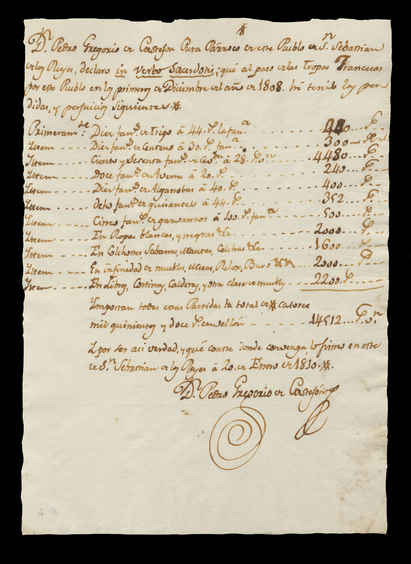 D.n Pedro Gregorio de Cura Párroco de este Pueblo de S.n Sebastian
de los Reyes, declaro in verbo Sacerdotis, que al paso de las Tropas Francesas
por este Pueblo en los primeros de Diciembre del año de 1808. he tenido las per
didas, y perjuicios siguientes
Primeram.te Diez fan.s de Trigo á 44. r.s la fan.a 440
Item Diez fan.s de Centeno á 30. r.s 300
Item Ciento y Sesenta fan.s de á 28. r.s 4480
Item doce fan.s de Avena á 20. r.s 240
Item Diez fan.s de Algarrobas á 40. r.s 400
Item Ocho fan.s de guisantes á 44. r.s 352
Item Cinco fan.s de garvanzos á 100. r.s fan.a 500
Item En Ropas blancas, y negras 2000
Item En Colchones Sabanas, Mantas, 1600
Item En infinidad de muebles, Mesas, 2000
Item En Cortinas, y otra clase de muebles 2200
Importan todas estas Partidas la total de catorce
mil quinientos y doce r.s de vellon 14512
Y por ser asi verdad, y que conste donde convenga lo firmo en este
de S.n Sebastian de los Reyes á 20. de Enero de 1810.
D.n Pedro Gregorio de